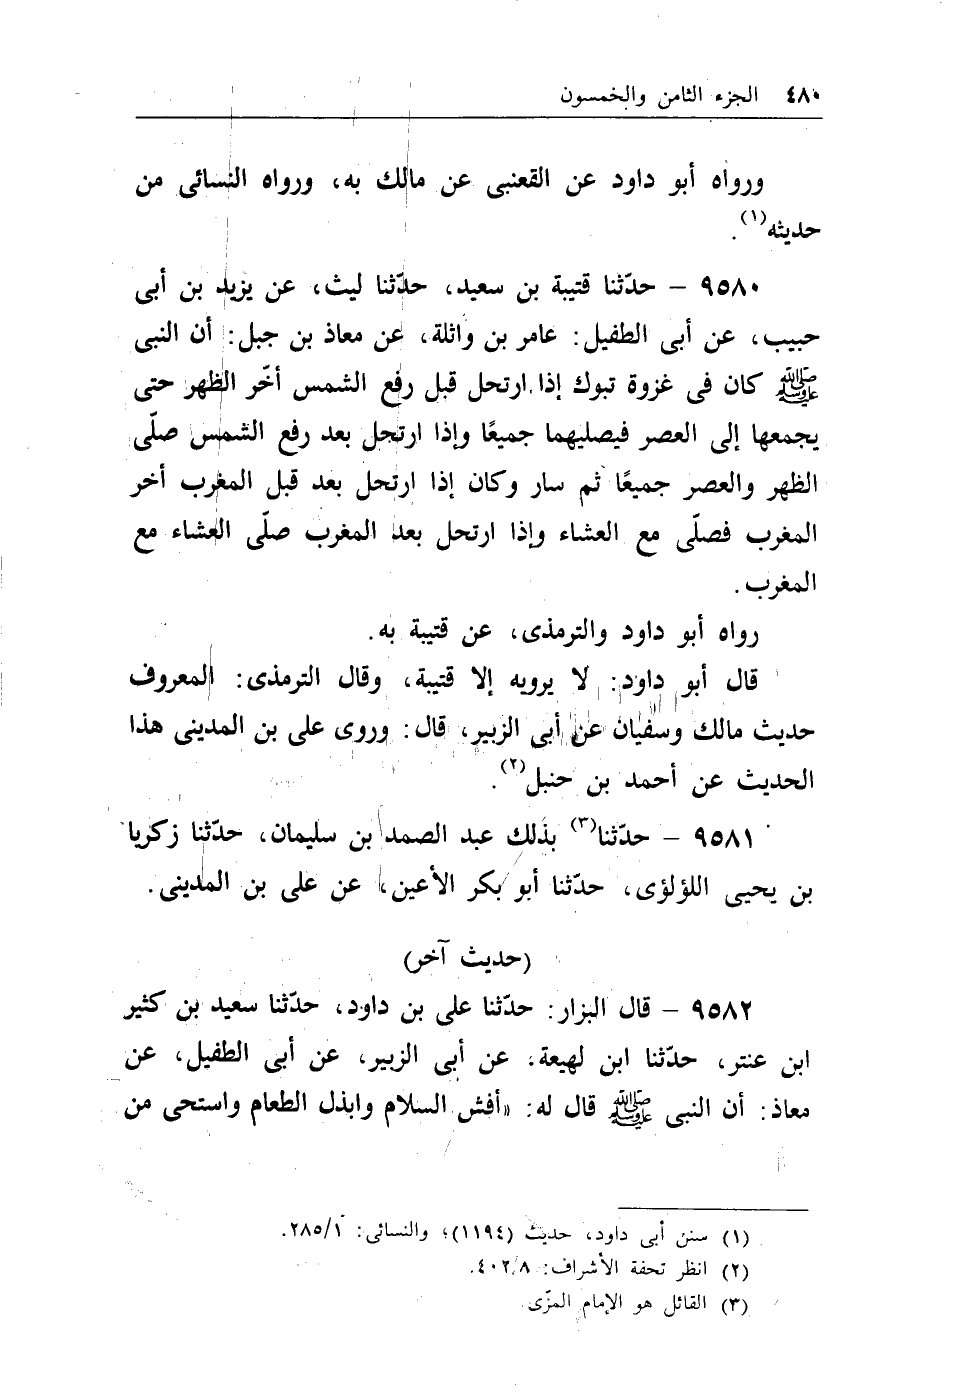 ٤٨٠ الجزء الثامن والخمسون
ورواه أبو داود عن القعنبى عن مالك به، ورواه النسائى من
حديثه(١).
٩٥٨٠ – حدّثنا قتيبة بن سعيد، حدّثنا ليث، عن يزيد بن أبى
حبيب، عن أبى الطفيل: عامر بن واثلة، عن معاذ بن جبل: أن النبى
ﷺ كان فى غزوة تبوك إذا ارتحل قبل رفع الشمس أخّر الظهر حتى
يجمعها إلى العصر فيصليهما جميعًا وإذا ارتحل بعد رفع الشمس صلّى
الظهر والعصر جميعًا ثم سار وكان إذا ارتحل بعد قبل المغرب أخر
المغرب فصلّى مع العشاء وإذا ارتحل بعد المغرب صلّى العشاء مع
المغرب.
رواه أبو داود والترمذى، عن قتيبة به.
قال أبو داود: لا يرويه إلا قتيبة، وقال الترمذى: المعروف
حديث مالك وسفيان عن أبى الزبير، قال: وروى على بن المدينى هذا
الحديث عن أحمد بن حنبل(٢).
٩٥٨١ – حدّثنا(٣) بذلك عبد الصمد بن سليمان، حدّثنا زكريا
بن يحيى اللؤلؤى، حدّثنا أبو بكر الأعين، عن على بن المدينى.
(حديث آخر)
٩٥٨٢ – قال البزار: حدّثنا على بن داود، حدّثنا سعيد بن كثير
ابن عنتر، حدّثنا ابن لهيعة، عن أبى الزبير، عن أبى الطفيل، عن
معاذ: أن النبى ﷺ قال له: «أفش السلام وابذل الطعام واستحى من
(١) سنن أبى داود، حديث (١١٩٤)؛ والنسائى: ٢٨٥/١.
(٢) انظر تحفة الأشراف: ٤٠٢/٨.
(٣) القائل هو الإمام المزّى.